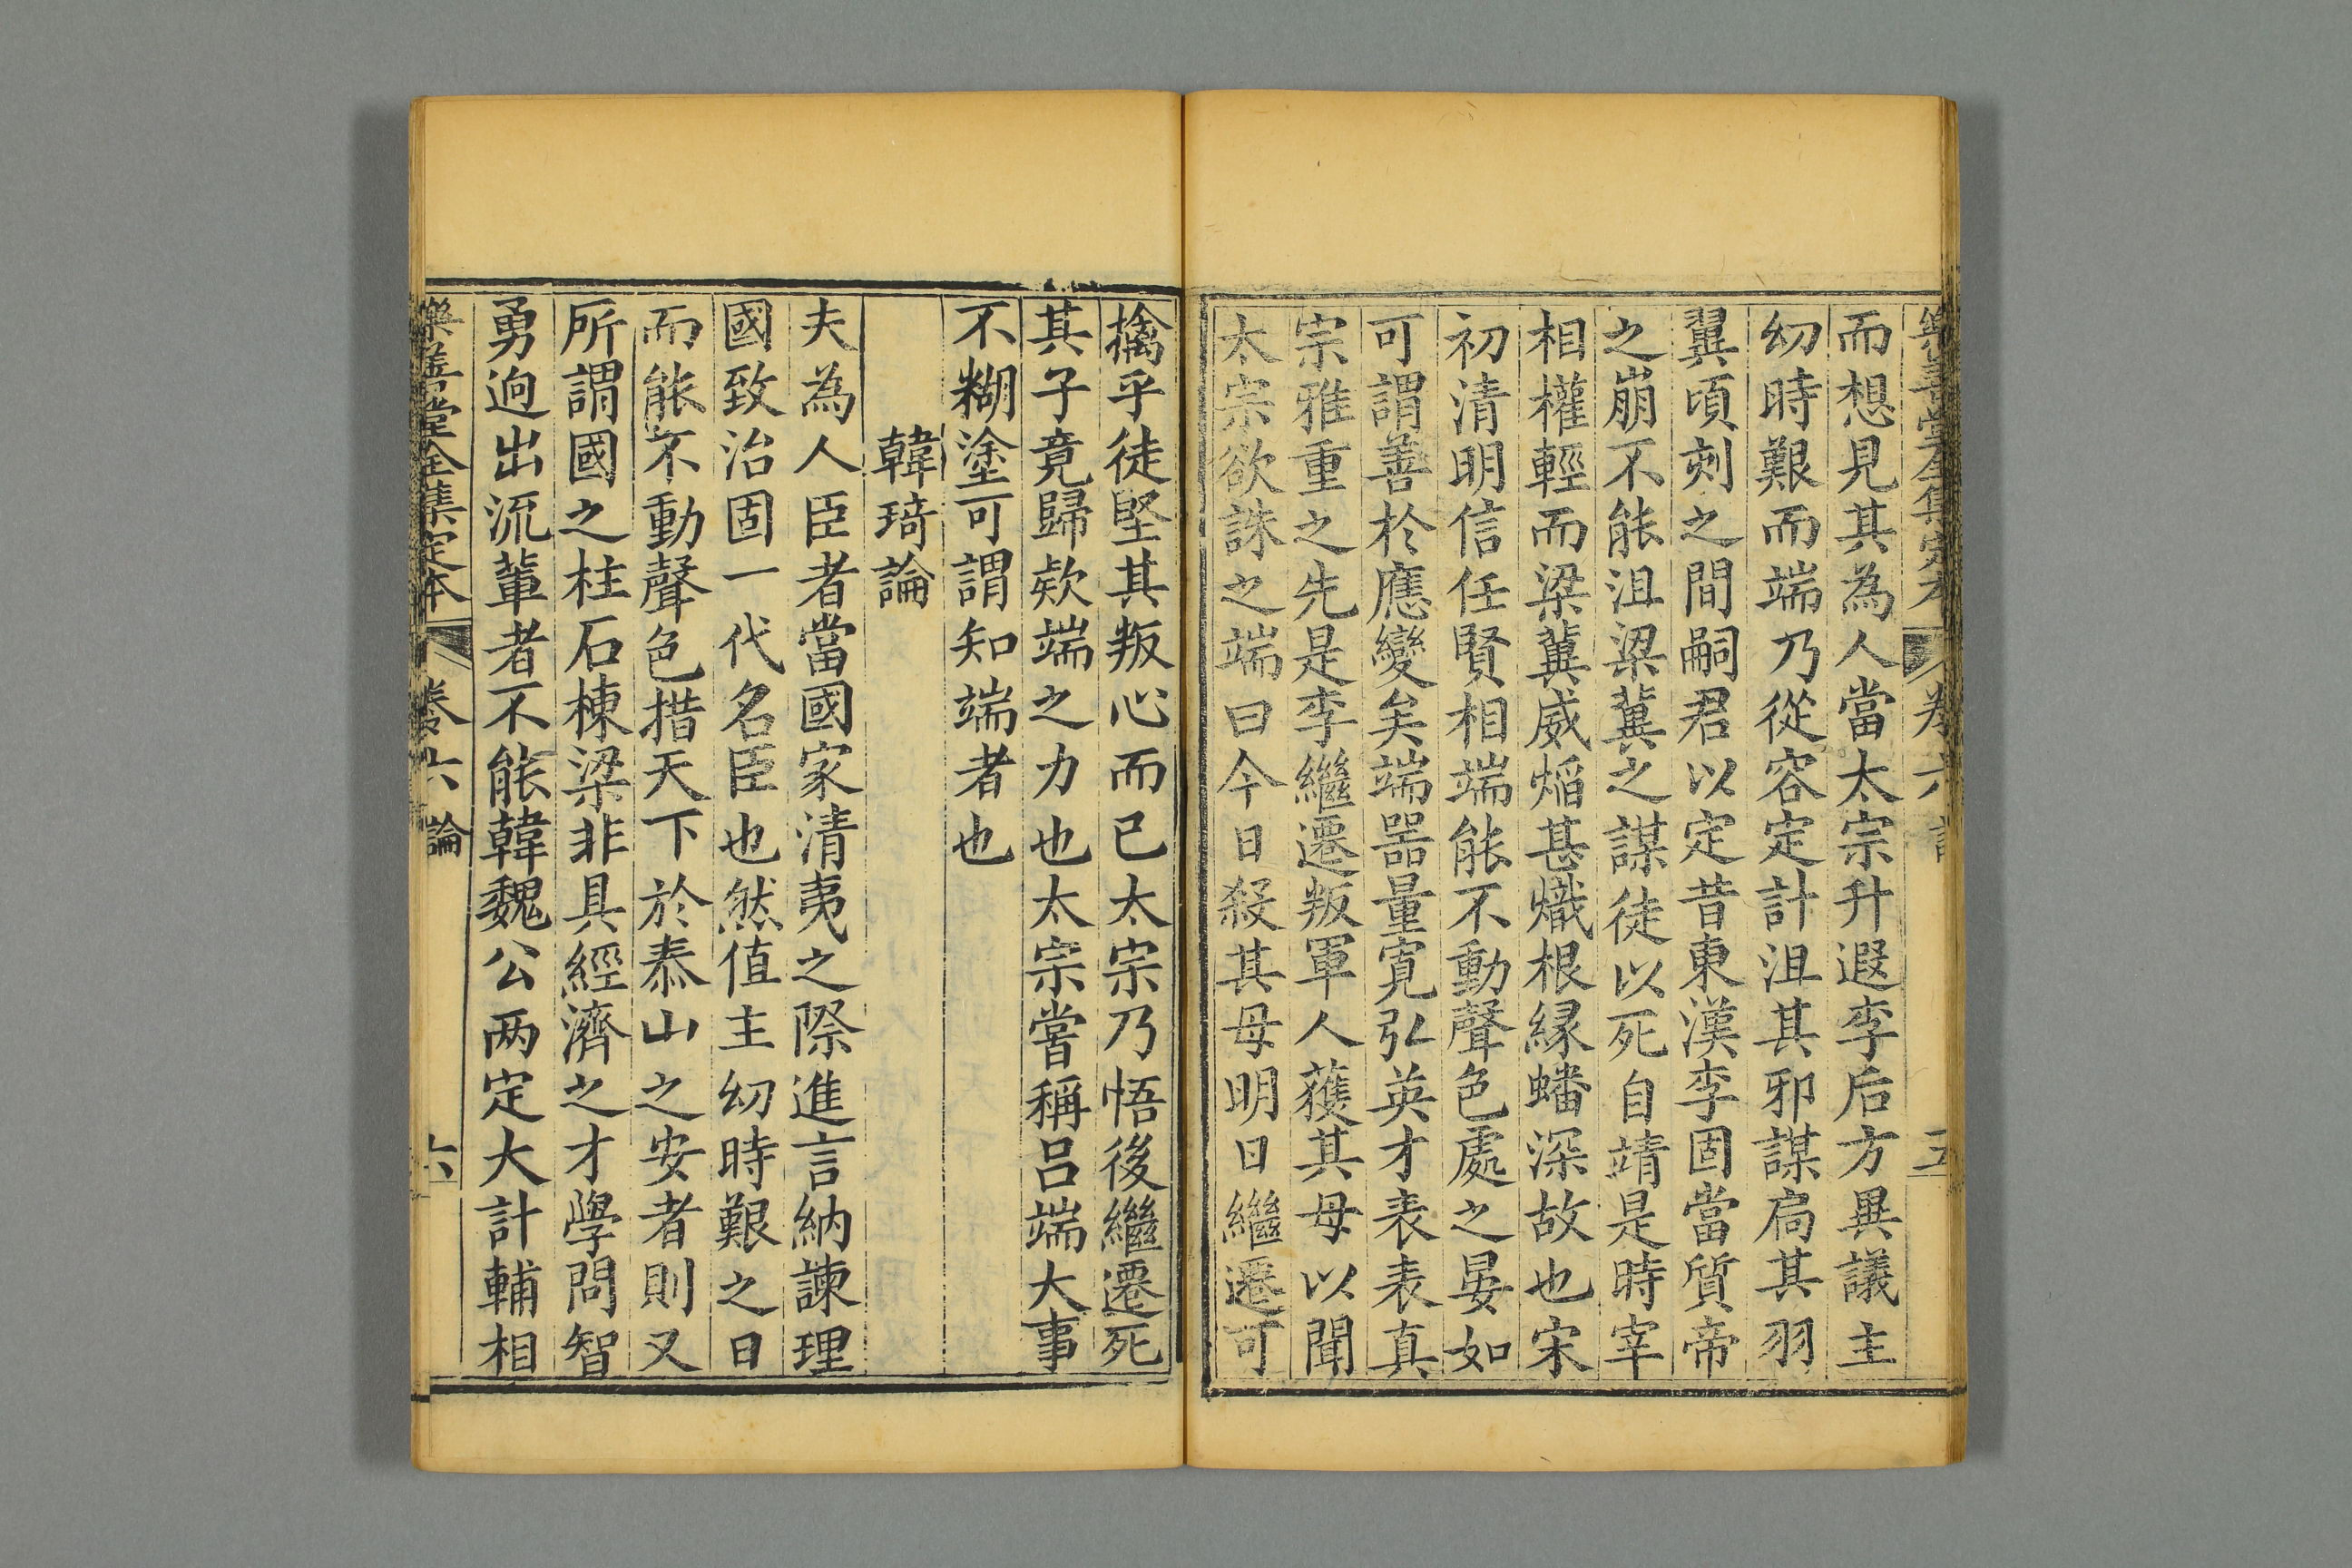 樂善堂全集定本 卷六 論 五
而想見其為人當太宗升遐李后方異議主
幼時艱而端乃從容定計沮其邪謀扃其羽
翼頃刻之間嗣君以定昔東漢李固當質帝
之崩不能沮梁冀之謀徒以死自靖是時宰
相權輕而梁冀威焰甚熾根緣蟠深故也宋
初清明信任賢相端能不動聲色處之晏如
可謂善於應變矣端器量寬弘英才表表真
宗雅重之先是李繼遷叛軍人獲其母以聞
太宗欲誅之端曰今日殺其母明日繼遷可
擒乎徒堅其叛心而已太宗乃悟後繼遷死
其子竟歸欵端之力也太宗嘗稱呂端大事
不糊塗可謂知端者也
韓琦論
夫為人臣者當國家清夷之際進言納諫理
國致治固一代名臣也然值主幼時艱之日
而能不動聲色措天下於泰山之安者則又
所謂國之柱石棟梁非具經濟之才學問智
勇逈出流輩者不能韓魏公两定大計輔相
樂善堂全集定本 卷六 論 六